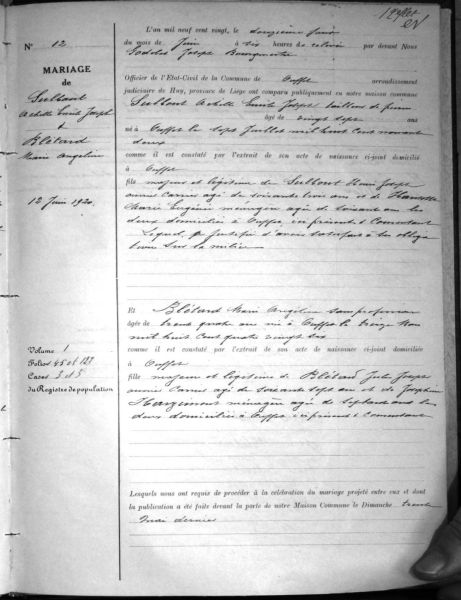 N° 12
MARIAGE
de
Achille Emile Joseph
&
Blétard
Marie Angeline
12 Juin 1920.
Volume 1
Folios 45 et 127
Cases 3 et 5
du Registre de population
L'an mil neuf cent vingt, le douzième jour
du mois de Juin à six heures de relevée par devant Nous
Joseph
Officier de l'Etat-Civil de la Commune de arrondissement
judiciaire de Huy, province de Liège ont comparu publiquement en notre maison commune
Achille Emile Joseph, tailleur de pierres
âgé de vingt sept ans
né à le sept Juillet mil huit cent nonante
deux
comme il est constaté par l'extrait de son acte de naissance ci-joint domicilié
à
fils majeur et légitime de Henri Joseph
ancien carrier âgé de soixante trois ans et de
Marie Eugénie ménagère âgée de soixante ans les
deux domiciliés à ci présents et consentant
Lequel a justifié d'avoir satisfait à ses obliga
tions sur la milice
Et Blétard Marie Angeline sans profession
âgée de trente quatre ans née à le treize Mars
mil huit cent quatre vingt six
comme il est constaté par l'extrait de son acte de naissance ci-joint domiciliée
à
fille majeure et légitime de Blétard Jules Joseph
ancien carrier âgé de soixante sept ans et de Joséphine
ménagère âgée de septante ans les
deux domiciliés à ci présents et consentant
Lesquels nous ont requis de procéder à la célébration du mariage projeté entre eux et dont
la publication a été faite devant la porte de notre Maison Commune le Dimanche trente
Mai dernier